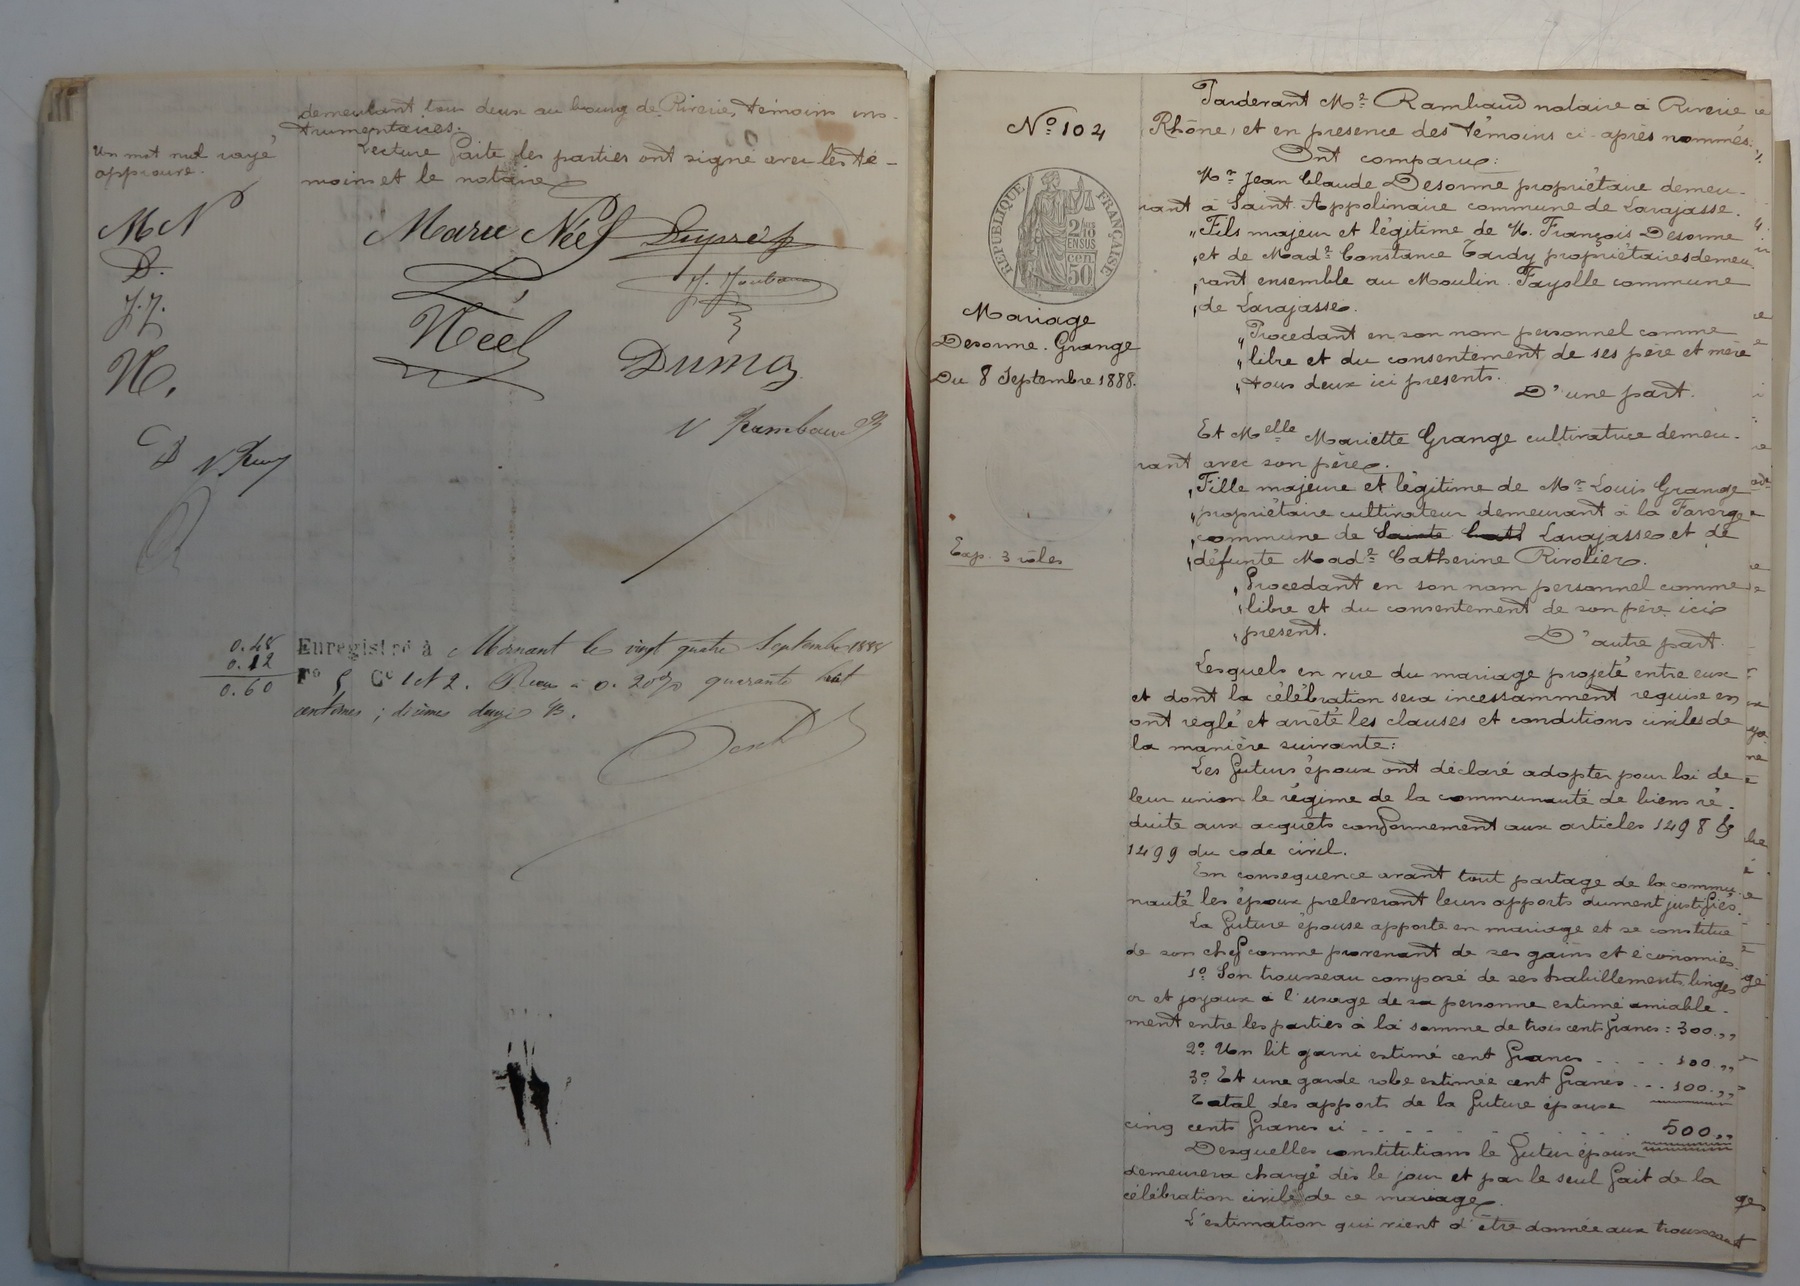 demeurant tous deux au bourg de Riverie, témoins ins-
trumentaires.
Un mot nul rayé
approuvé.
Lecture faite les parties ont signé avec les té-
moins et le notaire
MN
D.
J.J.
N.
Marie Néel
Néel
Dumas
N Rambaud
0.48
0.12
0.60
Enregistré à Mornant le vingt quatre Septembre 1888
Fo Ce 1 et 2. Reçu à 0.20 % quarante huit
centimes ; décimes douze
No 104
RÉPUBLIQUE FRANÇAISE
2/10
EN SUS
50 cen
Mariage
Desorme. Grange
Du 8 Septembre 1888.
Exp. 3 rôles
Pardevant Me Rambaud notaire à Riverie
Rhône, et en présence des témoins ci-après nommés.
Ont comparu:
Mr Jean Claude Desorme propriétaire demeu-
rant à Saint Appolinaire commune de Larajasse.
" Fils majeur et légitime de M. François Desorme
" et de Made Constance Tardy propriétaires demeu-
" rant ensemble au Moulin Fayolle commune
" de Larajasse.
" Procedant en son nom personnel comme
" libre et du consentement de ses père et mère
" tous deux ici présents.
D'une part.
Et Melle Mariette Grange cultivatrice demeu-
rant avec son père.
" Fille majeure et légitime de Mr Louis Grange
" propriétaire cultivateur demeurant à la Faverge
" commune de Sainte Cath Larajasse et de
" défunte Made Catherine Rivolier.
" Procedant en son nom personnel comme
" libre et du consentement de son père ici
" présent.
D'autre part.
Lesquels en vue du mariage projeté entre eux
et dont la célébration sera incessamment requise en
ont réglé et arrêté les clauses et conditions civiles de
la manière suivante:
Les futurs époux ont déclaré adopter pour loi de
leur union le régime de la communauté de biens ré-
duite aux acquêts conformement aux articles 1498 &
1499 du code civil.
En consequence avant tout partage de la commu-
nauté les époux preleveront leurs apports dument justifiés.
La future épouse apporte en mariage et se constitue
de son chef comme provenant de ses gains et économies.
1o Son trousseau composé de ses habillements, linges
or et joyaux à l'usage de sa personne estimé amiable-
ment entre les parties à la somme de trois cents francs : 300.,,
2o Un lit garni estimé cent francs . . . . 100.,,
3o Et une garde robe estimée cent francs . . . 100.,,
Total des apports de la future épouse
cinq cents francs ci . . . . . . . . . 500,,
Desquelles constitutions le futur époux
demeurera chargé dès le jour et par le seul fait de la
célébration civile de ce mariage.
L'estimation qui vient d'être donnée aux trousseau